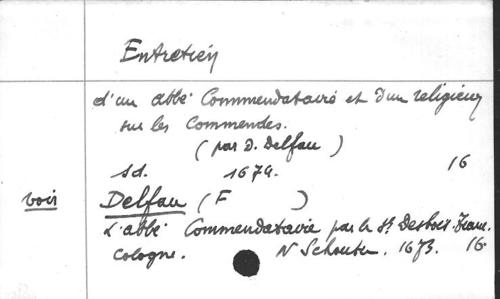 Entretien
d'un abbé Commendataire et d'un religieux
sur les Commendes.
(par D. Delfau)
sd. 1674. 16
voir Delfau (F )
L'abbé Commendataire par le Sr Desbois-Franc.
Cologne. N Schouten. 1673. 16.